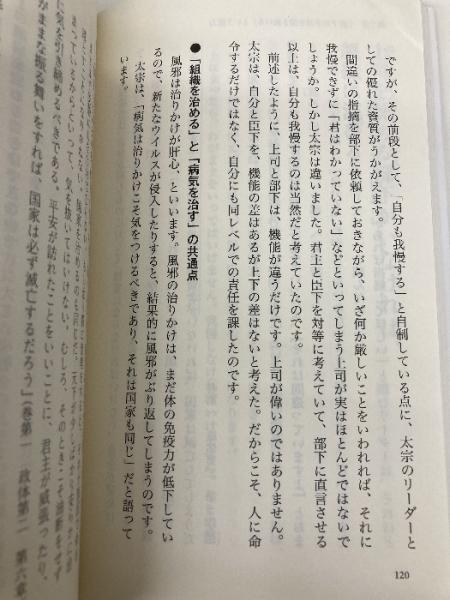 ですが、その前段として、「自分も我慢する」と自制している点に、太宗のリーダーと
しての優れた資質がうかがえます。
間違いの指摘を部下に依頼しておきながら、いざ何か厳しいことをいわれれば、それに
我慢できずに「君はわかっていない」などといってしまう上司が実はほとんどではないで
しょうか。しかし太宗は違いました。君主と臣下を対等に考えていて、部下に直言させる
以上は、自分も我慢するのは当然だと考えていたのです。
前述したように、上司と部下は、機能が違うだけです。上司が偉いのではありません。
太宗は、自分と臣下を、機能の差はあるが上下の差はないと考えた。だからこそ、人に命
令するだけではなく、自分にも同レベルでの責任を課したのです。
●「組織を治める」と「病気を治す」の共通点
風邪は治りかけが肝心、といいます。風邪の治りかけは、まだ体の免疫力が低下してい
るので、新たなウイルスが侵入したりすると、結果的に風邪がぶり返してしまうのです。
太宗は、「病気は治りかけこそ気をつけるべきであり、それは国家も同じ」だと語って
います。
気を抜いてはいけない。むしろ、そのときこそ
に気を引き締めるべきである。平安が訪れたことをいいことに、君主が威張ったり、
がままな振る舞いをすれば、国家は必ず滅亡するだろう」(巻第一 政体第二 第六章
120